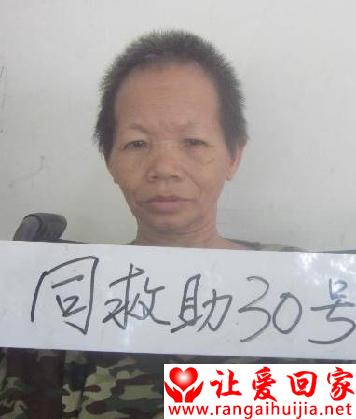 同救助30号
让爱回家
www.rangaihuijia.net